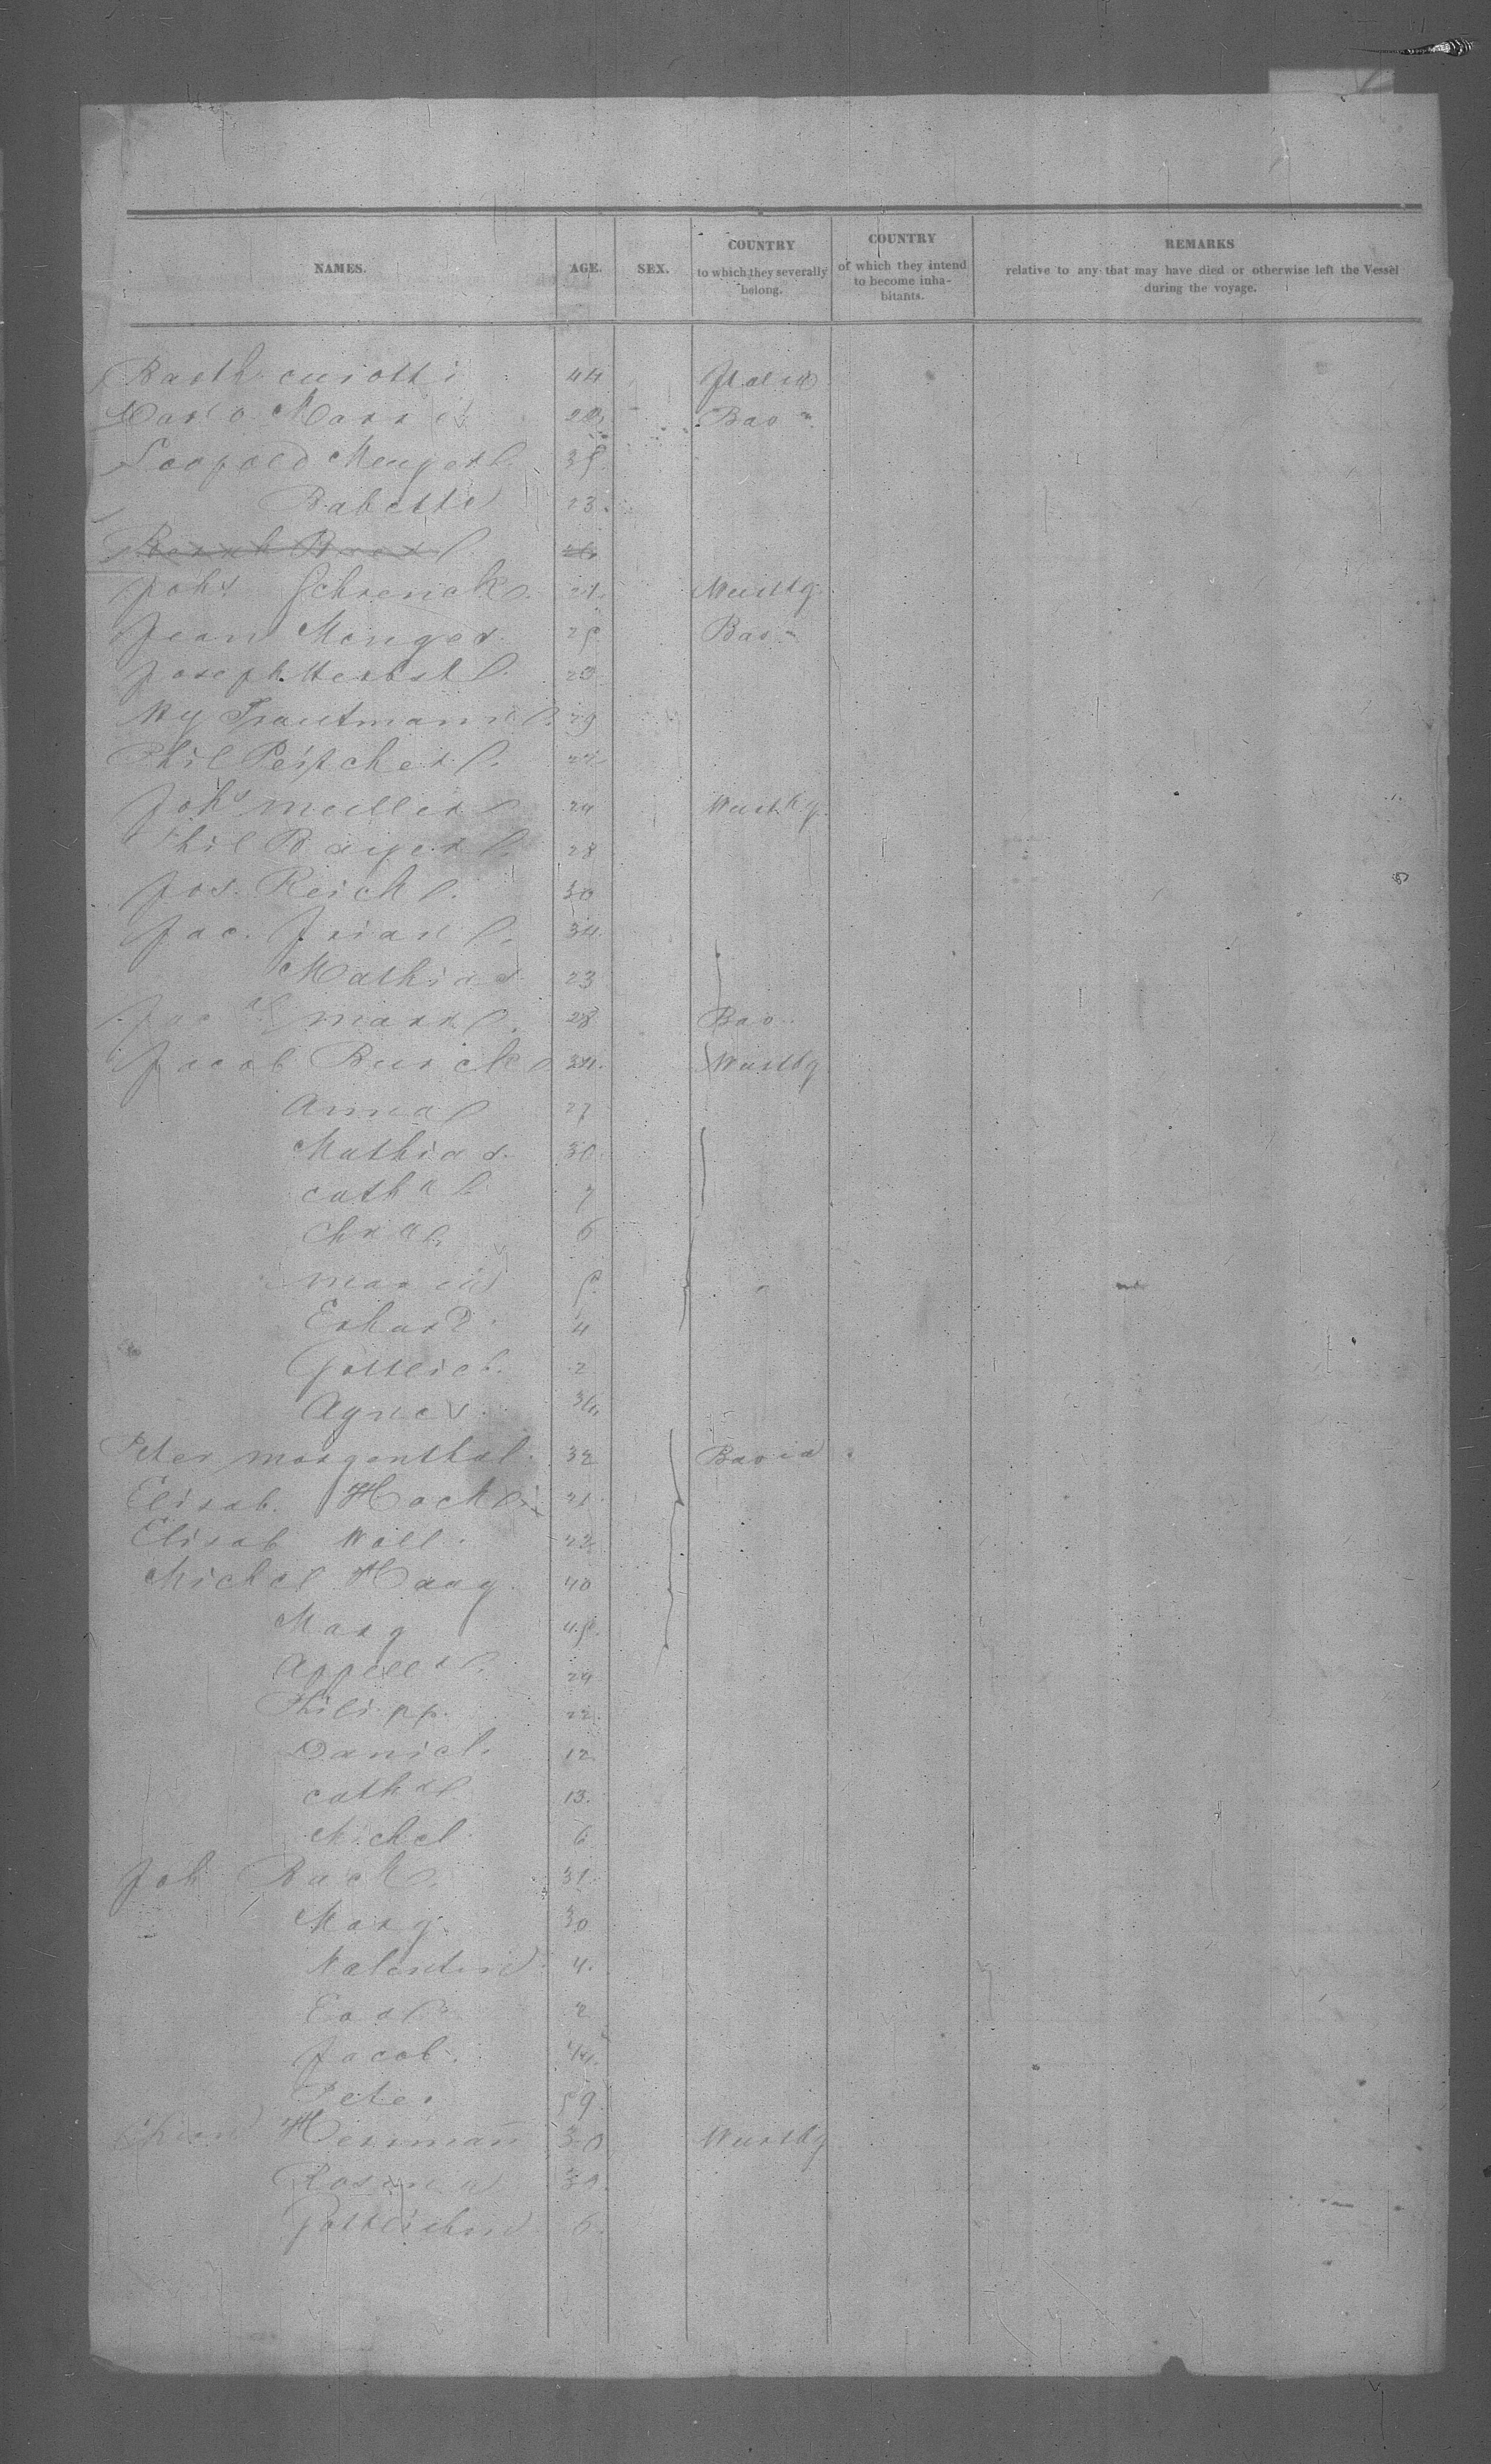 NAMES. AGE. SEX. COUNTRY to which they severally belong. COUNTRY of which they intend to become inhabitants. REMARKS relative to any that may have died or otherwise left the Vessel during the voyage.
Barth curotti 44 Italia
Marx
Leopold 35
Babette 23.
Johs Schrenck 21. Wurttg.
Jean Menger 25 Bav
Joseph Herbst 23
My Trautmann 29
Phil Peitscher 22
Johs Muller 24 Wurtbg.
Phil Bayer 28
Jos. Reich 30
Jac. 34.
Mathias 23
Marx 28 Bav.
Jacob Burck 34. Wurtbg
Anna 27
Mathias 30.
cathn 7
Chrn 6
Maria 5
Erhard 4
Gottlieb. 2
Agnes.
Peter Morgenthal. 32 Bavia
Elisab. Hock 21.
Elisab Woll. 22
Michel Haag. 40
Marg 45.
24
Philipp. 22.
Daniel. 12
cathn 13.
Michel 6
Joh Back. 31.
Marg. 30
Valentin 4.
2
Jacob.
Peter 59
Herrmann 30 Wurtbg
Rosina 30.
6.